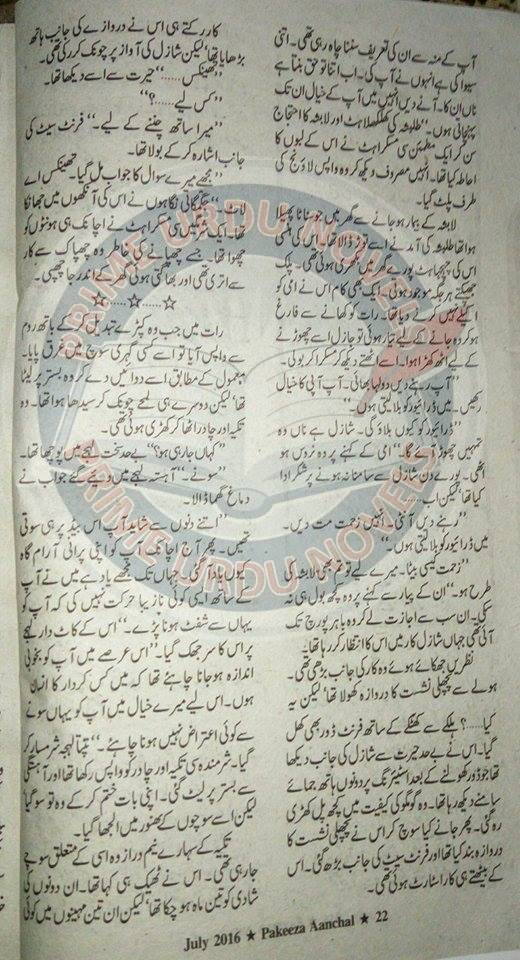 آپ کے منہ سے ان کی تعریف سننا چاہ رہی تھی۔ اتنی
سیوا کی ہے انہوں نے آپ کی۔ اب اتنا تو حق بنتا ہے
ناں ان کا۔ آنے دیں انہیں میں آپ کے خیال ان تک
پہنچاتی ہوں۔“ طلیشہ کی کھلکھلاہٹ اور لابشہ کا احتجاج
سن کر ایک مطمئن سی مسکراہٹ نے اس کے لبوں کا
احاطہ کیا تھا۔ انہیں مصروف دیکھ کر وہ واپس لاؤنج کی
طرف پلٹ گیا۔
لابشہ کے بیمار ہو جانے سے گھر میں جو سناٹا پھیلا
ہوا تھا طلیشہ کی آمد نے اسے توڑ ڈالا تھا۔ اس کی ہنسی
اس کی چہچہاہٹ پورے گھر میں بکھری ہوئی تھی۔ پلک
جھپکتے ہر جگہ موجود ہوتی۔ ایک بھی کام اس نے امی کو
اکیلے نہیں کرنے دیا تھا۔ رات کو کھانے سے فارغ
ہو کر وہ جانے کے لیے تیار ہوئی تو جازل اسے چھوڑنے
کے لیے اٹھ کھڑا ہوا۔ اسے اٹھتے دیکھ کر مسکرا کر بولی۔
”آپ رہنے دیں دولہا بھائی۔ آپ آپی کا خیال
رکھیں۔ میں ڈرائیور کو بلا لیتی ہوں۔“
”ڈرائیور کو کیوں بلاؤ گی۔ شازل ہے ناں وہ
تمہیں چھوڑ آئے گا۔“ امی کے کہنے پر وہ نروس ہو
اٹھی۔ پورے دن شازل سے سامنا نہ ہونے پر شکر ادا
کیا تھا لیکن اب......
”رہنے دیں آنٹی۔ انہیں زحمت مت دیں۔
میں ڈرائیور کو بلا لیتی ہوں۔“
”زحمت کیسی بیٹا۔ میرے لیے تو تم بھی لابشہ کی
طرح ہو۔“ ان کے پیار سے کہنے پر وہ کچھ بول ہی نہ
سکی۔ ان سب سے اجازت لے کر وہ باہر پورچ تک
آئی تھی جہاں شازل کار میں اس کا انتظار کر رہا تھا۔
نظریں جھکائے ہوئے وہ کار کی جانب بڑھی تھی۔
ہولے سے پچھلی نشست کا دروازہ کھولا تھا لیکن یہ
کیا......؟ ہلکے سے کھٹکے کے ساتھ فرنٹ ڈور بھی کھل
گیا۔ اس نے بے حد حیرت سے شازل کی جانب دیکھا
تھا جو ڈور کھولنے کے بعد اسٹیئرنگ پر دونوں ہاتھ جمائے
سامنے دیکھ رہا تھا۔ وہ گومگو کی کیفیت میں کچھ پل کھڑی
رہ گئی۔ پھر جانے کیا سوچ کر اس نے پچھلی نشست کا
دروازہ بند کیا تھا اور فرنٹ سیٹ کی جانب بڑھ گئی۔ اس
کے بیٹھتے ہی کار اسٹارٹ ہوئی تھی۔
کار رکتے ہی اس نے دروازے کی جانب ہاتھ
بڑھایا تھا لیکن شازل کی آواز پر چونک کر رکی تھی۔
”تھینکس......“ حیرت سے اسے دیکھا تھا۔
”کس لیے......؟“
”میرا ساتھ چننے کے لیے۔“ فرنٹ سیٹ کی
جانب اشارہ کر کے بولا تھا۔
”مجھے میرے سوال کا جواب مل گیا۔ تھینکس اے
لاٹ۔“ جگمگاتی نگاہوں نے اس کی آنکھوں میں جھانکا
تھا۔ ایک شرمیلی سی مسکراہٹ نے اچانک ہی ہونٹوں کو
چھوا تھا۔ جسے چھپانے کی خاطر وہ چھپاک سے کار
سے اتری تھی اور بھاگتی ہوئی گھر کے اندر جا چھپی۔
☆......☆......☆
رات میں جب وہ کپڑے تبدیل کر کے باتھ روم
سے واپس آیا تو اسے کسی گہری سوچ میں غرق پایا۔
معمول کے مطابق اسے دوائیں دے کر وہ بستر پر لیٹا
تھا لیکن دوسرے ہی لمحے چونک کر سیدھا ہوا تھا۔ وہ
تکیہ اور چادر اٹھا کر کھڑی ہوئی تھی۔
”کہاں جا رہی ہو؟“ بے حد سخت لہجے میں پوچھا تھا۔
”سونے۔“ آہستہ لہجے میں دیئے گئے جواب نے
دماغ گھما ڈالا۔
”اتنے دنوں سے شاید آپ اس بیڈ پر ہی سوتی
تھیں۔ پھر آج اچانک آپ کو اپنی پرانی آرام گاہ
کیوں یاد آ گئی۔ جہاں تک مجھے یاد ہے میں نے آپ
کے ساتھ ایسی کوئی نازیبا حرکت نہیں کی کہ آپ کو
یہاں سے شفٹ ہونا پڑے۔“ اس کے کاٹ دار لہجے
پر اس کا سر جھک گیا۔ ”اس عرصے میں آپ کو بخوبی
اندازہ ہو جانا چاہئے تھا کہ میں کس کردار کا انسان
ہوں۔ اس لیے میرے خیال میں آپ کو یہاں سونے
سے کوئی اعتراض نہیں ہونا چاہئے۔“ تپتا لہجہ شرمسار کر
گیا۔ شرمندہ سی تکیہ اور چادر کو واپس رکھا تھا اور آہستگی
سے بستر پر لیٹ گئی۔ اپنی بات ختم کر کے وہ تو سو گیا
لیکن اسے سوچوں کے بھنور میں الجھا گیا۔
تکیہ کے سہارے نیم دراز وہ اسی کے متعلق سوچے
جا رہی تھی۔ اس نے ٹھیک ہی کہا تھا۔ ان دونوں کی
شادی کو تین ماہ ہو چکا تھا لیکن ان تین مہینوں میں کوئی
July 2016 ★ Pakeeza Aanchal ★ 22
PRIME URDU NOVELS
PRIME URDU NOVELS